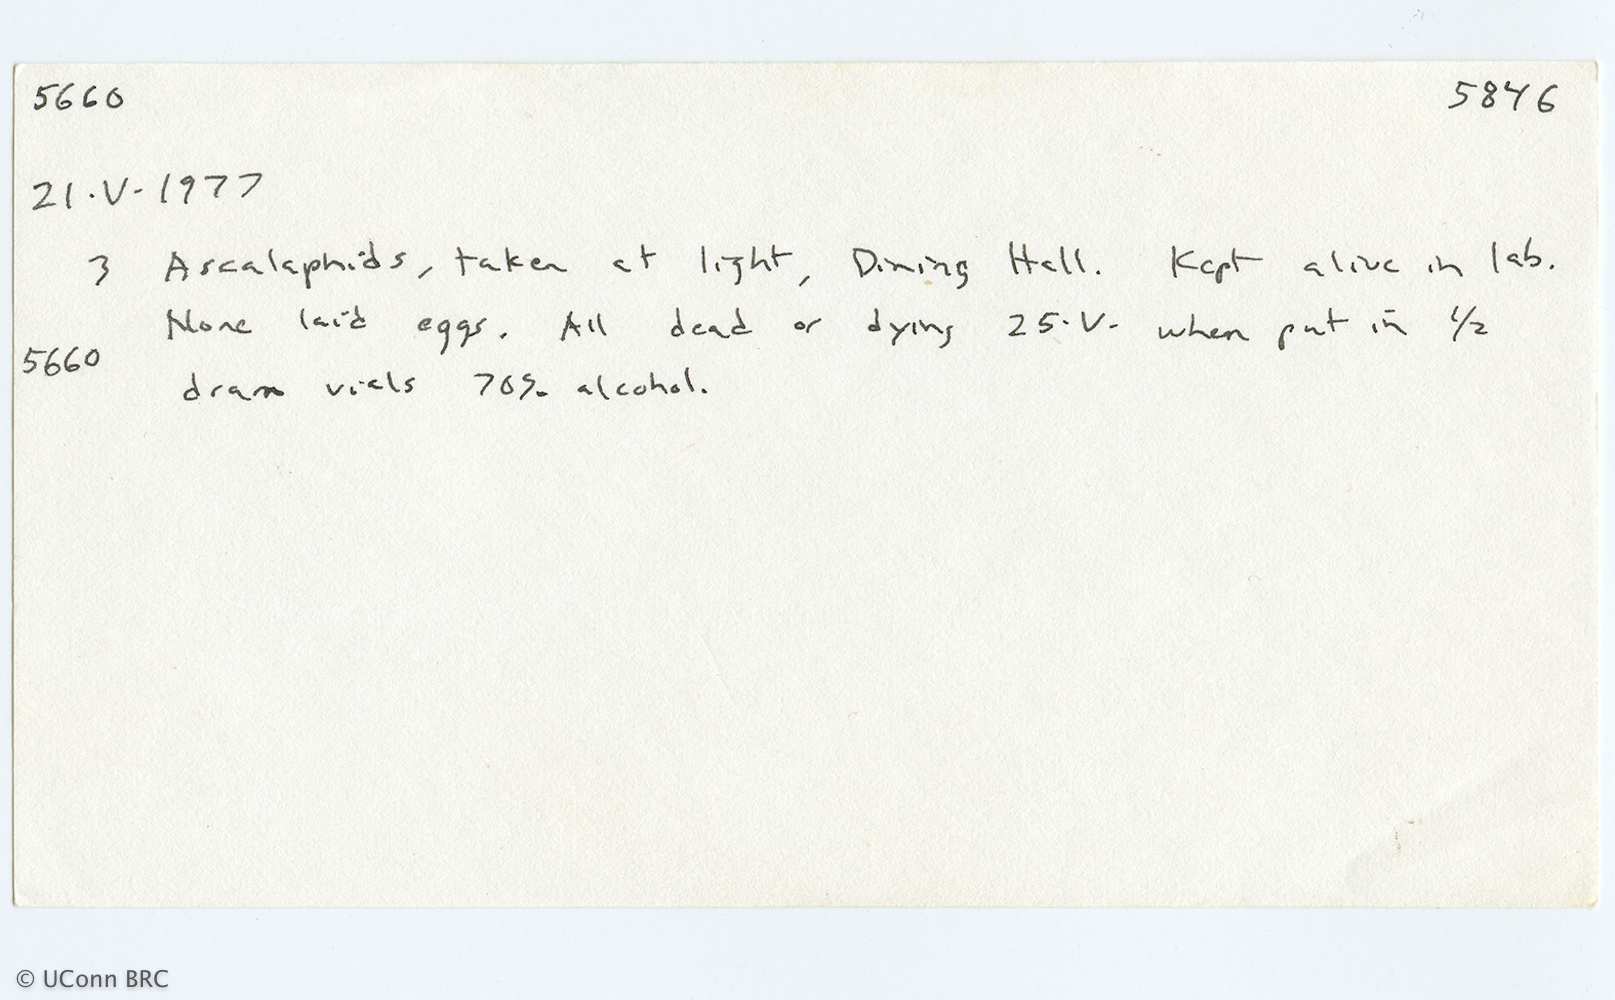 5660 5846
21·V-1977
3 Ascalaphids, taken at light, Dining Hall. Kept alive in lab.
None laid eggs. All dead or dying 25·V- when put in 1/2
5660
dram vials 70% alcohol.
© UConn BRC